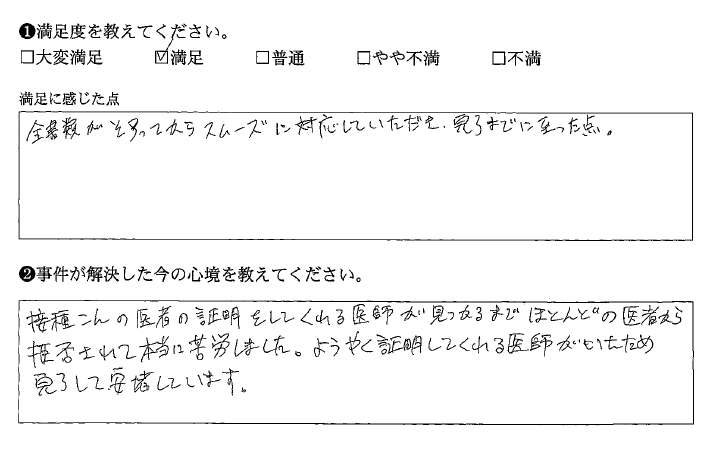 ❶満足度を教えてください。
□大変満足 ☑満足 □普通 □やや不満 □不満
満足に感じた点
全書類がそろってからスムーズに対応していただき、完了までに至った点。
❷事件が解決した今の心境を教えてください。
接種こんの医者の証明をしてくれる医師が見つかるまでほとんどの医者から
拒否されて本当に苦労しました。ようやく証明してくれる医師がいたため
完了して安堵しています。